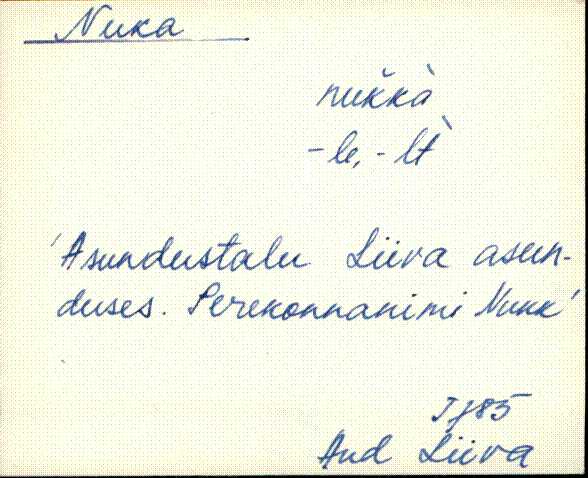 Nuka
nukkà
-le, -lt̀
'Asundustalu Liiva asun-
duses. Perekonnanimi Nukk'
J/85
And Liiva